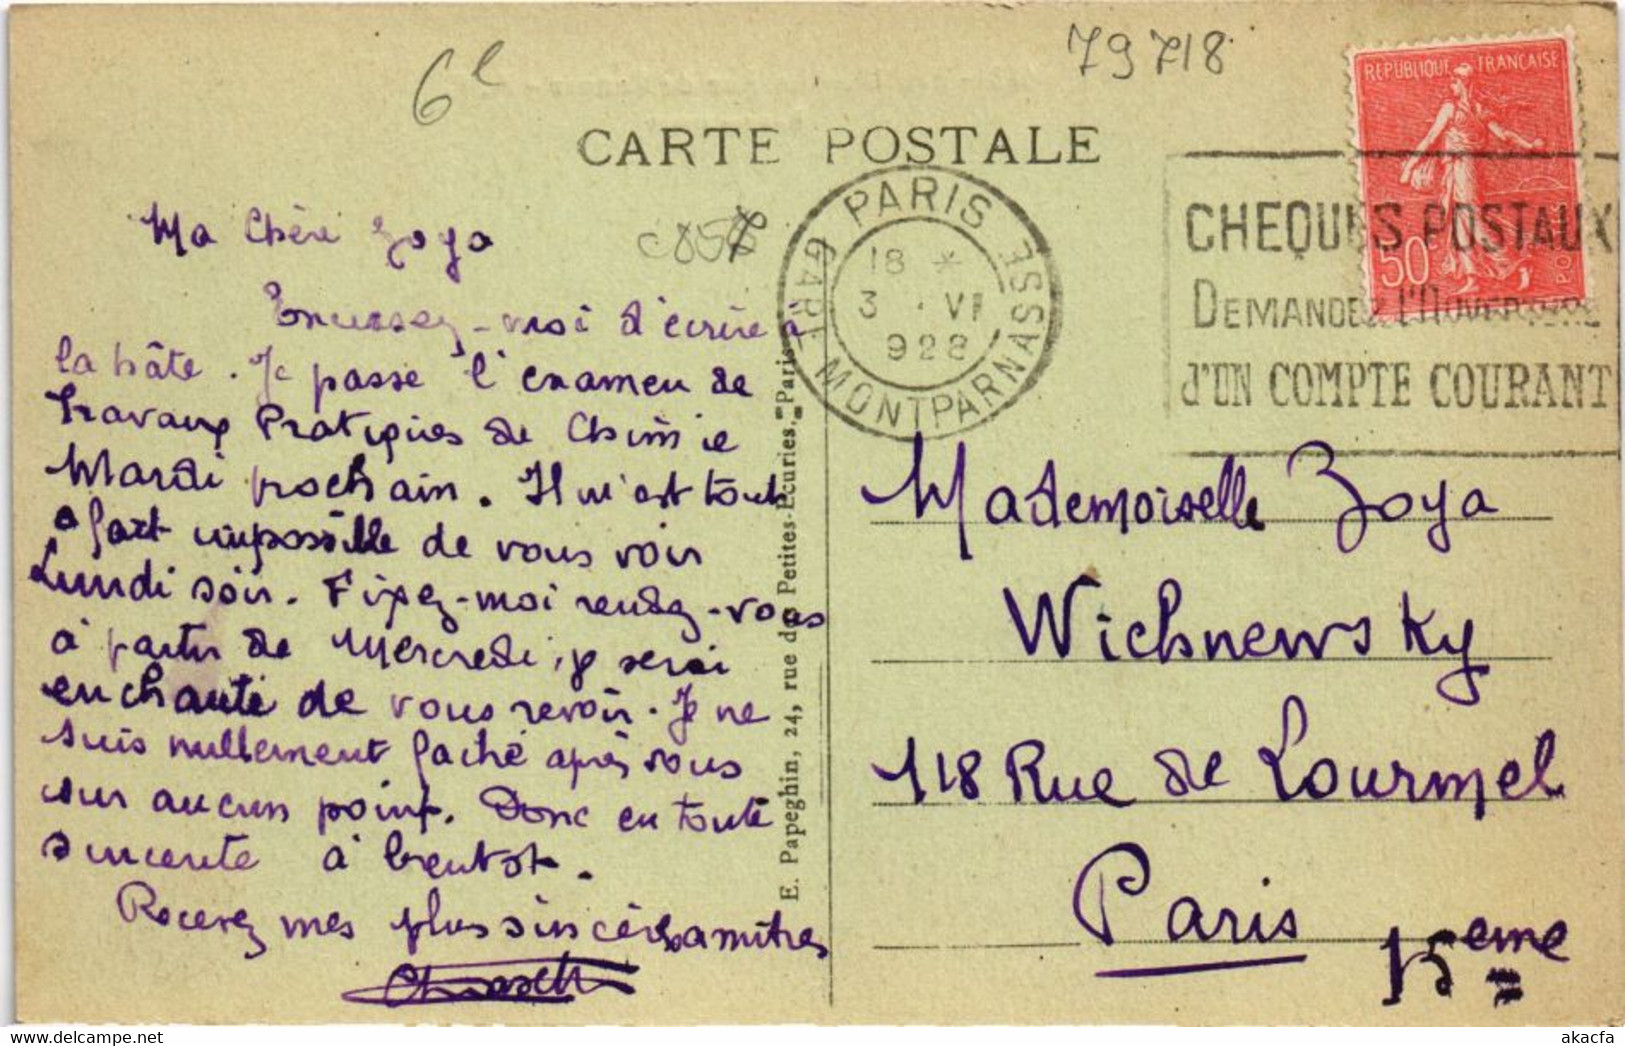 6e
79718
CARTE POSTALE
REPUBLIQUE FRANÇAISE
50c
PARIS
GARE MONTPARNASSE
18 *
3 · VI
928
CHEQUES POSTAUX
DEMANDEZ L'OUVERTURE
d'UN COMPTE COURANT
Ma Chère Zoya
Excusez-moi d'écrire à
la hâte. Je passe l'examen de
Travaux Pratiques de Chimie
Mardi prochain. Il m'est tout
a fait impossible de vous voir
Lundi soir. Fixez-moi rendez-vous
à partir de Mercredi, je serai
enchanté de vous revoir. Je ne
suis nullement faché après vous
sur aucun point. Donc en toute
sincerité à bientot.
Recevez mes plus sincères amitiés
E. Papeghin, 24, rue des Petites-Ecuries, Paris
Mademoiselle Zoya
Wichnewsky
118 Rue de Lourmel
Paris
15eme
akacfa.delcampe.net